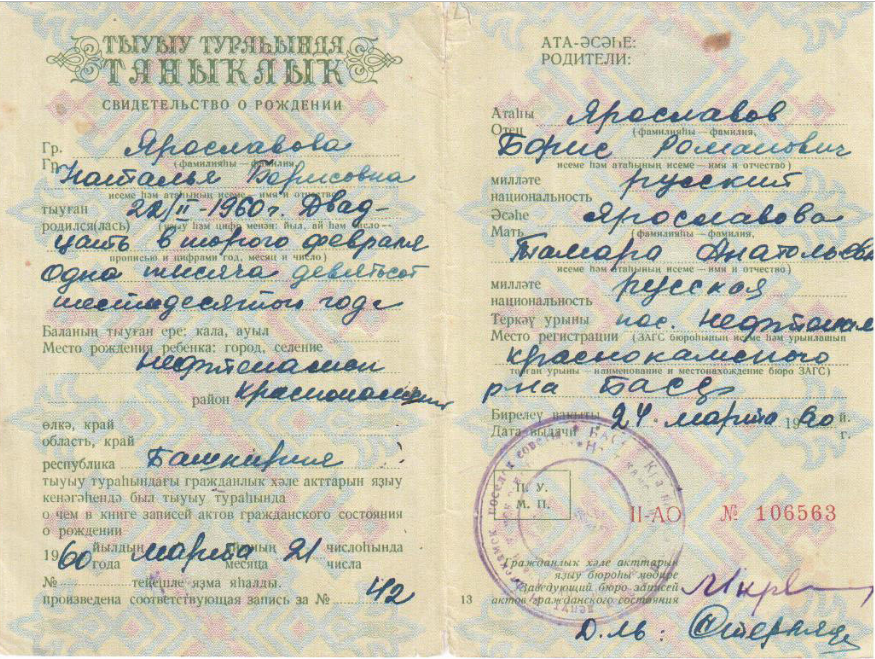 ТЫУЫУ ТУРАҺЫНДА
ТАНЫКЛЫК
СВИДЕТЕЛЬСТВО О РОЖДЕНИИ
Гр. Ярославова
(фамилияһы — фамилия,
Гр. Наталья Борисовна
исеме һәм атаһының исеме — имя и отчество)
тыуған 22/II-1960г. Двад-
родился(лась) (тыуыу һәм цифр менән: йыл, ай һәм число)
цать второго февраля
прописью и цифрами год, месяц и число)
Одна тысяча девятьсот
шестидесятого года
Баланың тыуған ере: кала, ауыл
Место рождения ребенка: город, селение
район
өлкә, край
область, край
республика Башкирия
тыуыу тураһындағы гражданлык хәле акттарын языу
кенәгәһендә был тыуыу тураһында
о чем в книге записей актов гражданского состояния
о рождении
1960 йылдың марта айының 21 числоһында
года месяца числа
№ тейешле язма яһалды.
произведена соответствующая запись за № 42
АТА-ӘСӘҺЕ:
РОДИТЕЛИ:
Атаһы Ярославов
Отец (фамилияһы — фамилия,
Борис Романович
исеме һәм атаһының исеме — имя и отчество)
милләте русский
национальность
Әсәһе Ярославова
Мать (фамилияһы — фамилия,
Тамара
исеме һәм атаһының исеме — имя и отчество)
милләте русская
национальность
Теркәү урыны пос.
Место регистрации (ЗАГС бюроһының исеме һәм урынлашҡан
Краснокамского
торған урыны — наименование и местонахождение бюро ЗАГС)
р-на
Бирелеү вакыты 24 марта 1960 й.
Дата выдачи г.
П. У.
М. П.
II-АО № 106563
Гражданлык хәле акттарын
языу бюроһы мөдире
Заведующий бюро записей
актов гражданского состояния
13